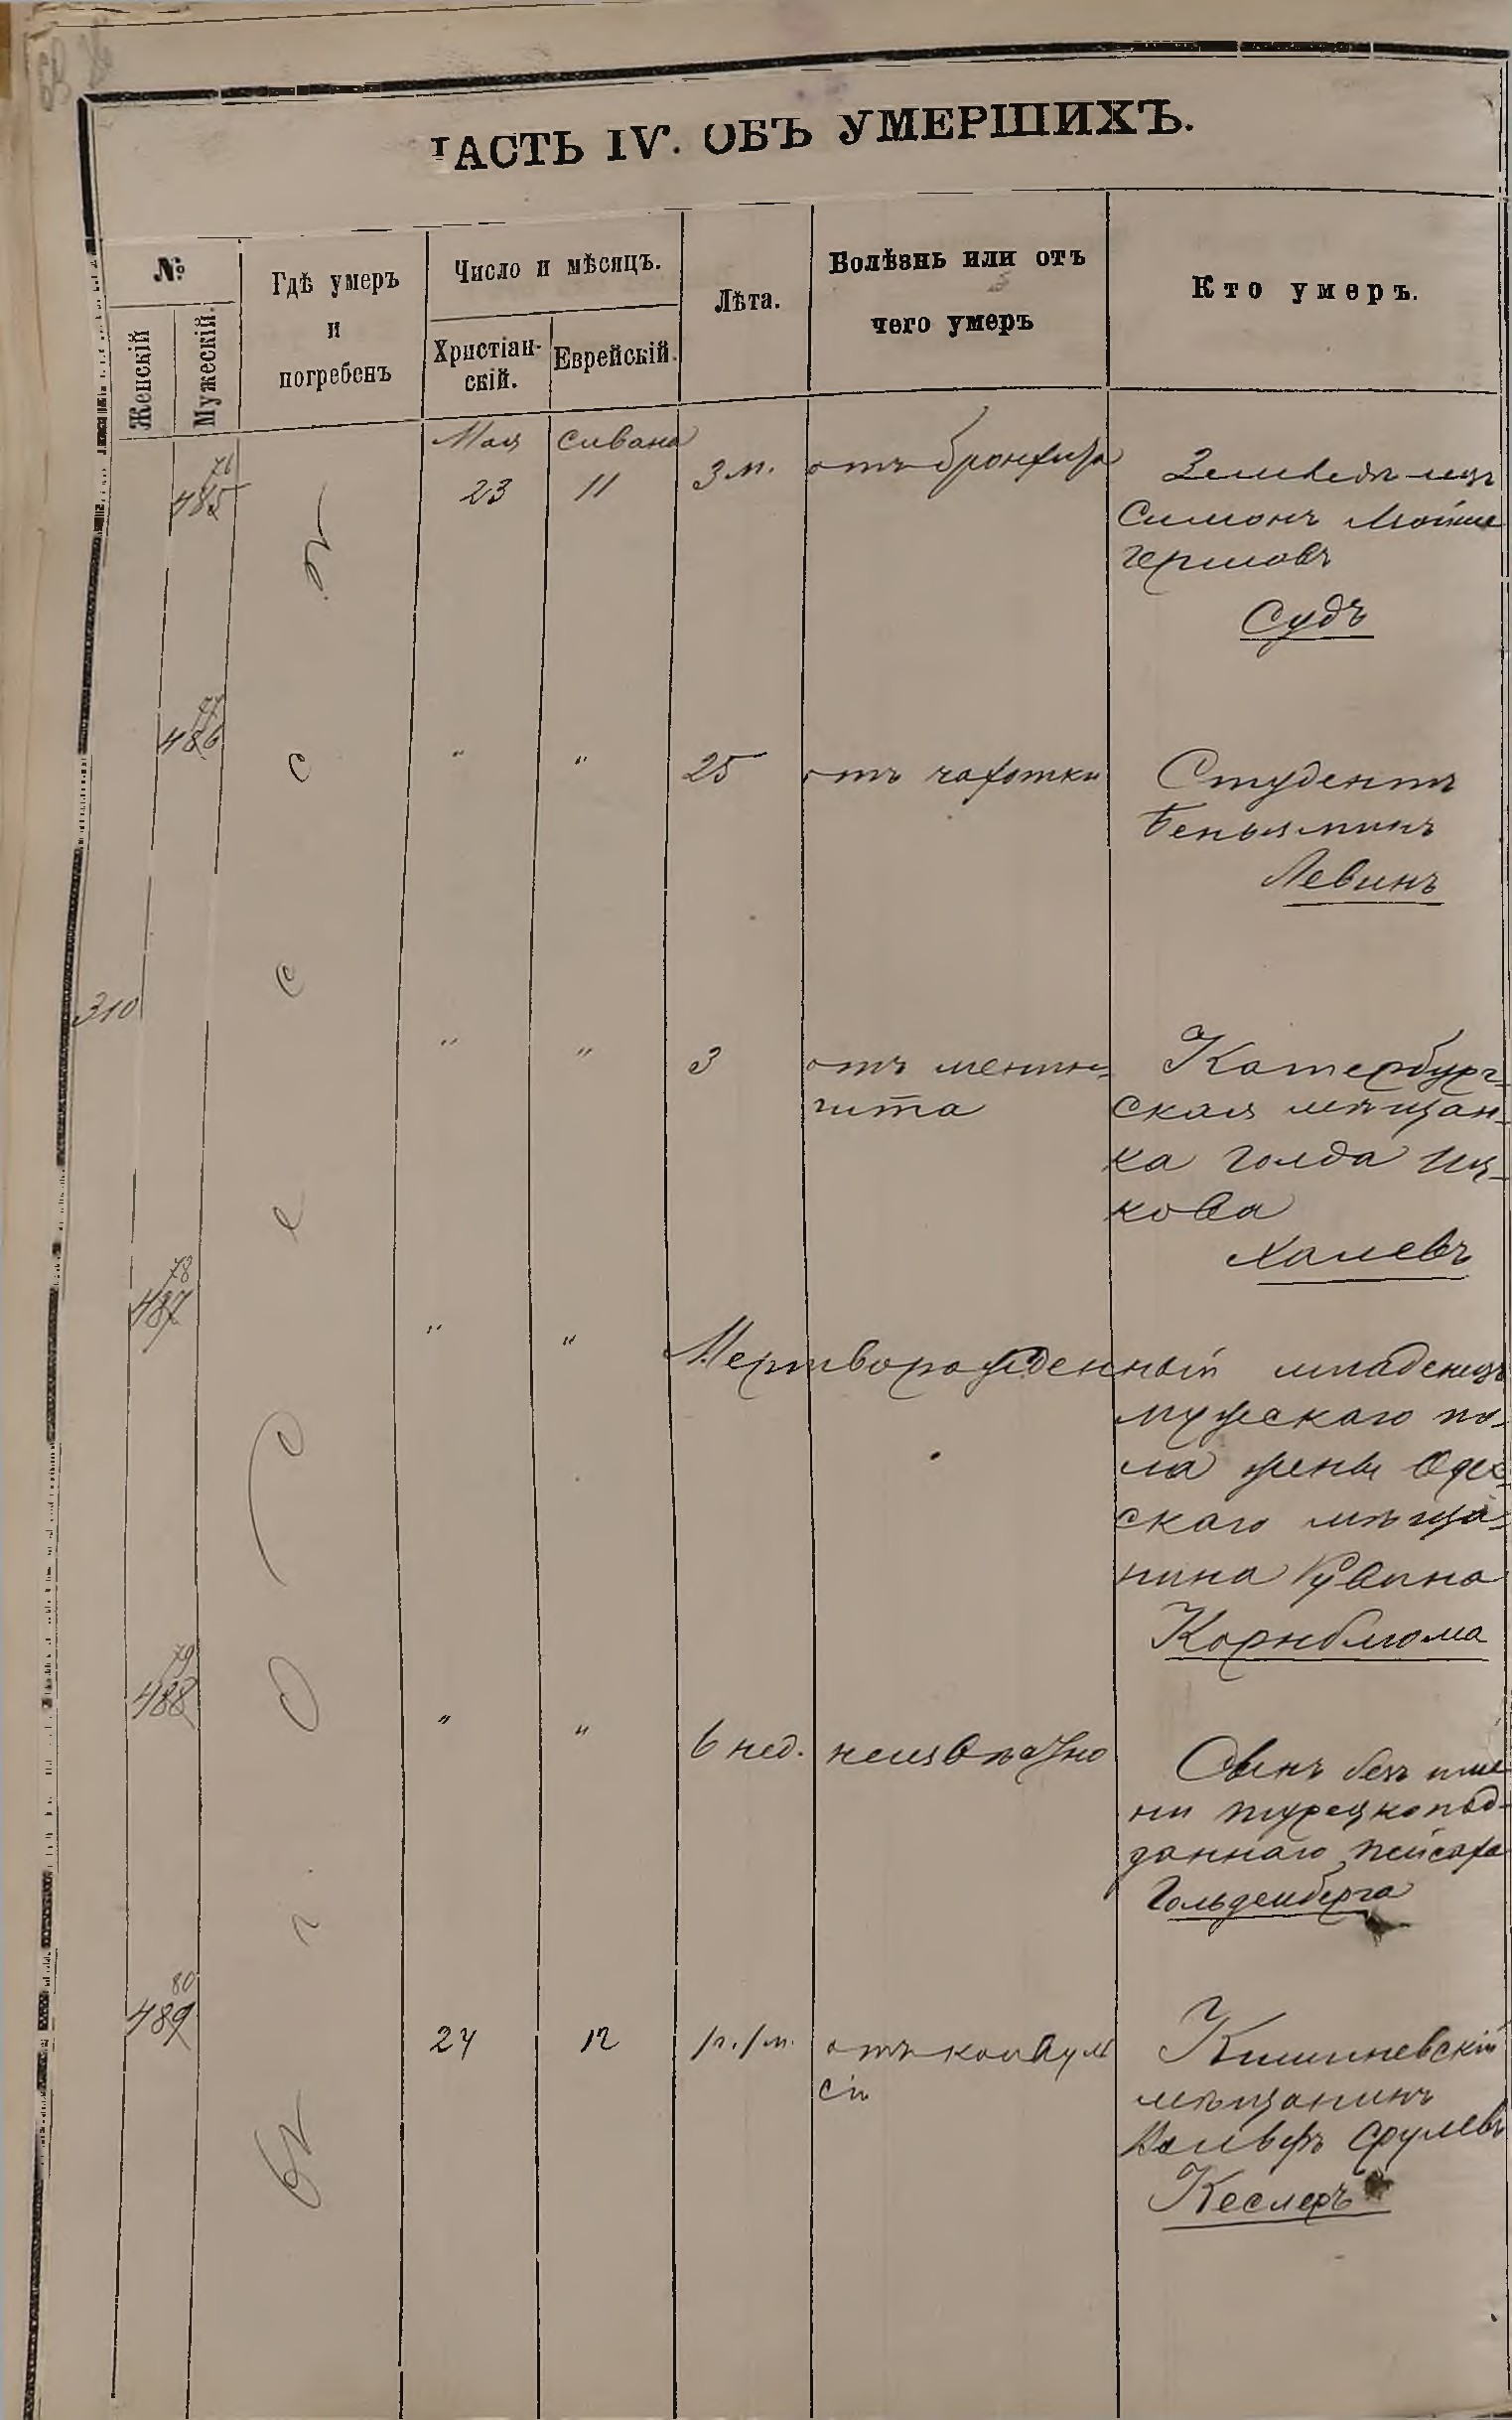 ЧАСТЬ IV. ОБЪ УМЕРШИХЪ.
№
Женскій
Мужескій.
Гдѣ умеръ
и
погребенъ
Число и мѣсяцъ.
Христіан-
скій.
Еврейскій.
Лѣта.
Болѣзнь или отъ
чего умеръ
Кто умеръ.
Мая Сивана
76
485 23 11 3 м. отъ бронхита Земледѣлецъ
Симонъ Мойше
Гершовъ
Судъ
77
486 " " 25 отъ чахотки Студентъ
Беньяминъ
Левинъ
310 " " 3 отъ менин-
гита
Катербург-
ская мѣщан-
ка Голда Иц-
кова
Халевъ
78
487 " " Мертворожденный младенецъ
мужескаго по-
ла жены Одес-
скаго мѣща-
нина Рувина
Корнблюма
79
488 " " 6 нед. неизвѣстно Сынъ безъ име
ни турецкопод-
даннаго Пейсаха
Гольденберга
80
489 24 12 1 г. 1 м. отъ конвуль
сіи
Кишиневскій
мѣщанинъ
Вольфъ Срулевъ
Кеслеръ
въ г. Одессѣ